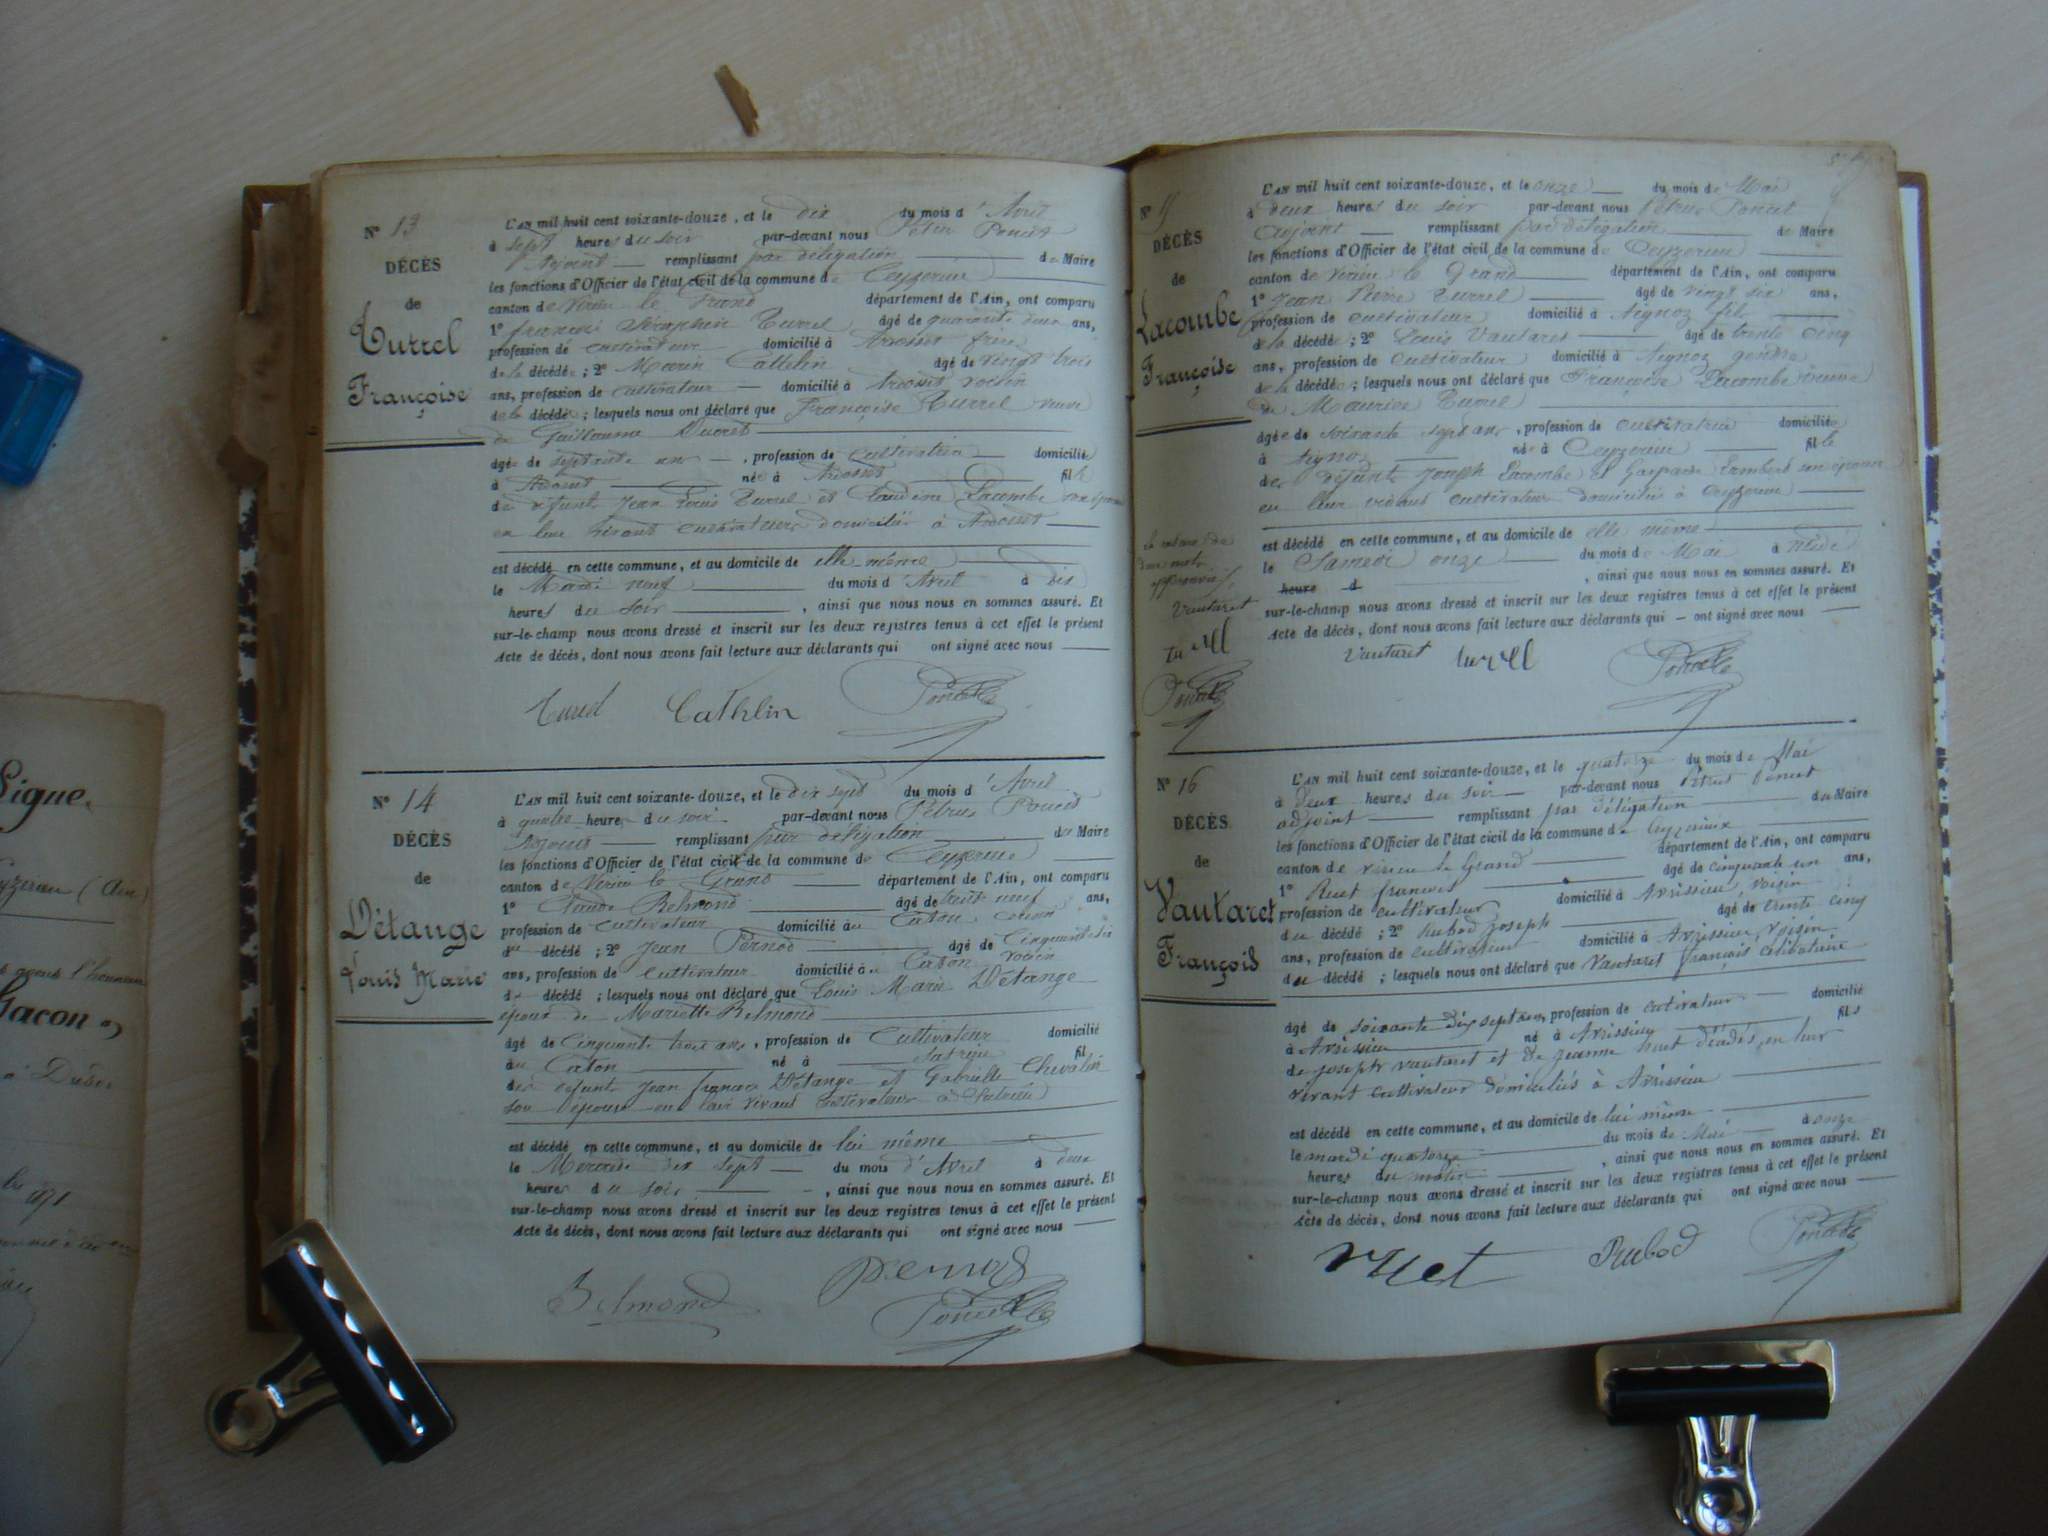 N° 13
DÉCÈS
de
Turrel
Françoise
L'AN mil huit cent soixante-douze, et le dix du mois d'Avril
à sept heures du soir par-devant nous Poncet
Adjoint remplissant par délégation du Maire
les fonctions d'Officier de l'état civil de la commune de Ceyzerieu
canton de Virieu le Grand département de l'Ain, ont comparu
1° françois Séraphin Turrel âgé de quarante deux ans,
profession de cultivateur domicilié à Avrissieu frère
de la décédée ; 2° Marin Cathelin âgé de vingt trois
ans, profession de cultivateur domicilié à voisin
de la décédée ; lesquels nous ont déclaré que Françoise Turrel veuve
de Guillaume Ducret
âgée de septante ans, profession de cultivatrice domiciliée
à née à fille
de défunts Jean Louis Turrel et Claudine Lacombe son épouse
en leur vivant cultivateurs domiciliés à
est décédé en cette commune, et au domicile de elle même
le Mardi neuf du mois d'Avril à dix
heures du soir, ainsi que nous nous en sommes assuré. Et
sur-le-champ nous avons dressé et inscrit sur les deux registres tenus à cet effet le présent
Acte de décès, dont nous avons fait lecture aux déclarants qui ont signé avec nous
Turrel Cathlin Poncet
N° 14
DÉCÈS
de
Détange
Louis Marie
L'AN mil huit cent soixante-douze, et le dix sept du mois d'Avril
à quatre heures du soir par-devant nous Pétrus Poncet
Adjoint remplissant par délégation du Maire
les fonctions d'Officier de l'état civil de la commune de Ceyzerieu
canton de Virieu le Grand département de l'Ain, ont comparu
1° Claude Belmond âgé de trente neuf ans,
profession de cultivateur domicilié au Caton voisin
du décédé ; 2° Jean Pernod âgé de Cinquante six
ans, profession de cultivateur domicilié au Caton voisin
du décédé ; lesquels nous ont déclaré que Louis Marie Détange
époux de Mariette Belmond
âgé de Cinquante trois ans, profession de Cultivateur domicilié
au Caton né à fils
des défunts Jean françois Détange et Gabrielle Chevalin
son épouse en leur vivant cultivateurs à
est décédé en cette commune, et au domicile de lui même
le Mercredi dix sept du mois d'Avril à deux
heures du soir, ainsi que nous nous en sommes assuré. Et
sur-le-champ nous avons dressé et inscrit sur les deux registres tenus à cet effet le présent
Acte de décès, dont nous avons fait lecture aux déclarants qui ont signé avec nous
Belmond Pernod
Poncet
N° 15
DÉCÈS
de
Lacombe
Françoise
L'AN mil huit cent soixante-douze, et le onze du mois de Mai
à deux heures du soir par-devant nous Pétrus Poncet
Adjoint remplissant par délégation du Maire
les fonctions d'Officier de l'état civil de la commune de Ceyzerieu
canton de Virieu le Grand département de l'Ain, ont comparu
1° Jean Pierre Turrel âgé de vingt six ans,
profession de cultivateur domicilié à Aignoz fils
de la décédée ; 2° Louis Vautaret âgé de trente cinq
ans, profession de cultivateur domicilié à Aignoz gendre
de la décédée ; lesquels nous ont déclaré que Françoise Lacombe veuve
de Maurice Turrel
âgée de soixante sept ans, profession de cultivatrice domiciliée
à Aignoz née à Ceyzerieu fille
de défunts Joseph Lacombe et Gasparde Lambert son épouse
en leur vivant cultivateurs domiciliés à Ceyzerieu
est décédé en cette commune, et au domicile de elle même
le Samedi onze du mois de Mai à midi
heure d, ainsi que nous nous en sommes assuré. Et
sur-le-champ nous avons dressé et inscrit sur les deux registres tenus à cet effet le présent
Acte de décès, dont nous avons fait lecture aux déclarants qui ont signé avec nous
Vautaret turell Poncet
la rature de
deux mots
approuvée
Vautaret
turell
Poncet
N° 16
DÉCÈS
de
Vautaret
François
L'AN mil huit cent soixante-douze, et le quatorze du mois de Mai
à deux heures du soir par-devant nous Pétrus Poncet
adjoint remplissant par délégation du Maire
les fonctions d'Officier de l'état civil de la commune de Ceyzerieux
canton de virieu le Grand département de l'Ain, ont comparu
1° Ruet françois âgé de cinquante un ans,
profession de cultivateur domicilié à Avrissieu, voisin
du décédé ; 2° Rubod Joseph âgé de trente cinq
ans, profession de cultivateur domicilié à Avrissieu, voisin
du décédé ; lesquels nous ont déclaré que Vautaret françois célibataire
âgé de soixante dix sept ans, profession de cultivateur domicilié
à Avrissieu né à Avrissieu fils
de joseph vautaret et de jeanne ruet décédés, en leur
vivant cultivateur domiciliés à Avrissieu
est décédé en cette commune, et au domicile de lui même
le mardi quatorze du mois de Mai à onze
heures du matin, ainsi que nous nous en sommes assuré. Et
sur-le-champ nous avons dressé et inscrit sur les deux registres tenus à cet effet le présent
Acte de décès, dont nous avons fait lecture aux déclarants qui ont signé avec nous
ruet Rubod Poncet
Signe
(Ain)
avons l'honneur
Gacon